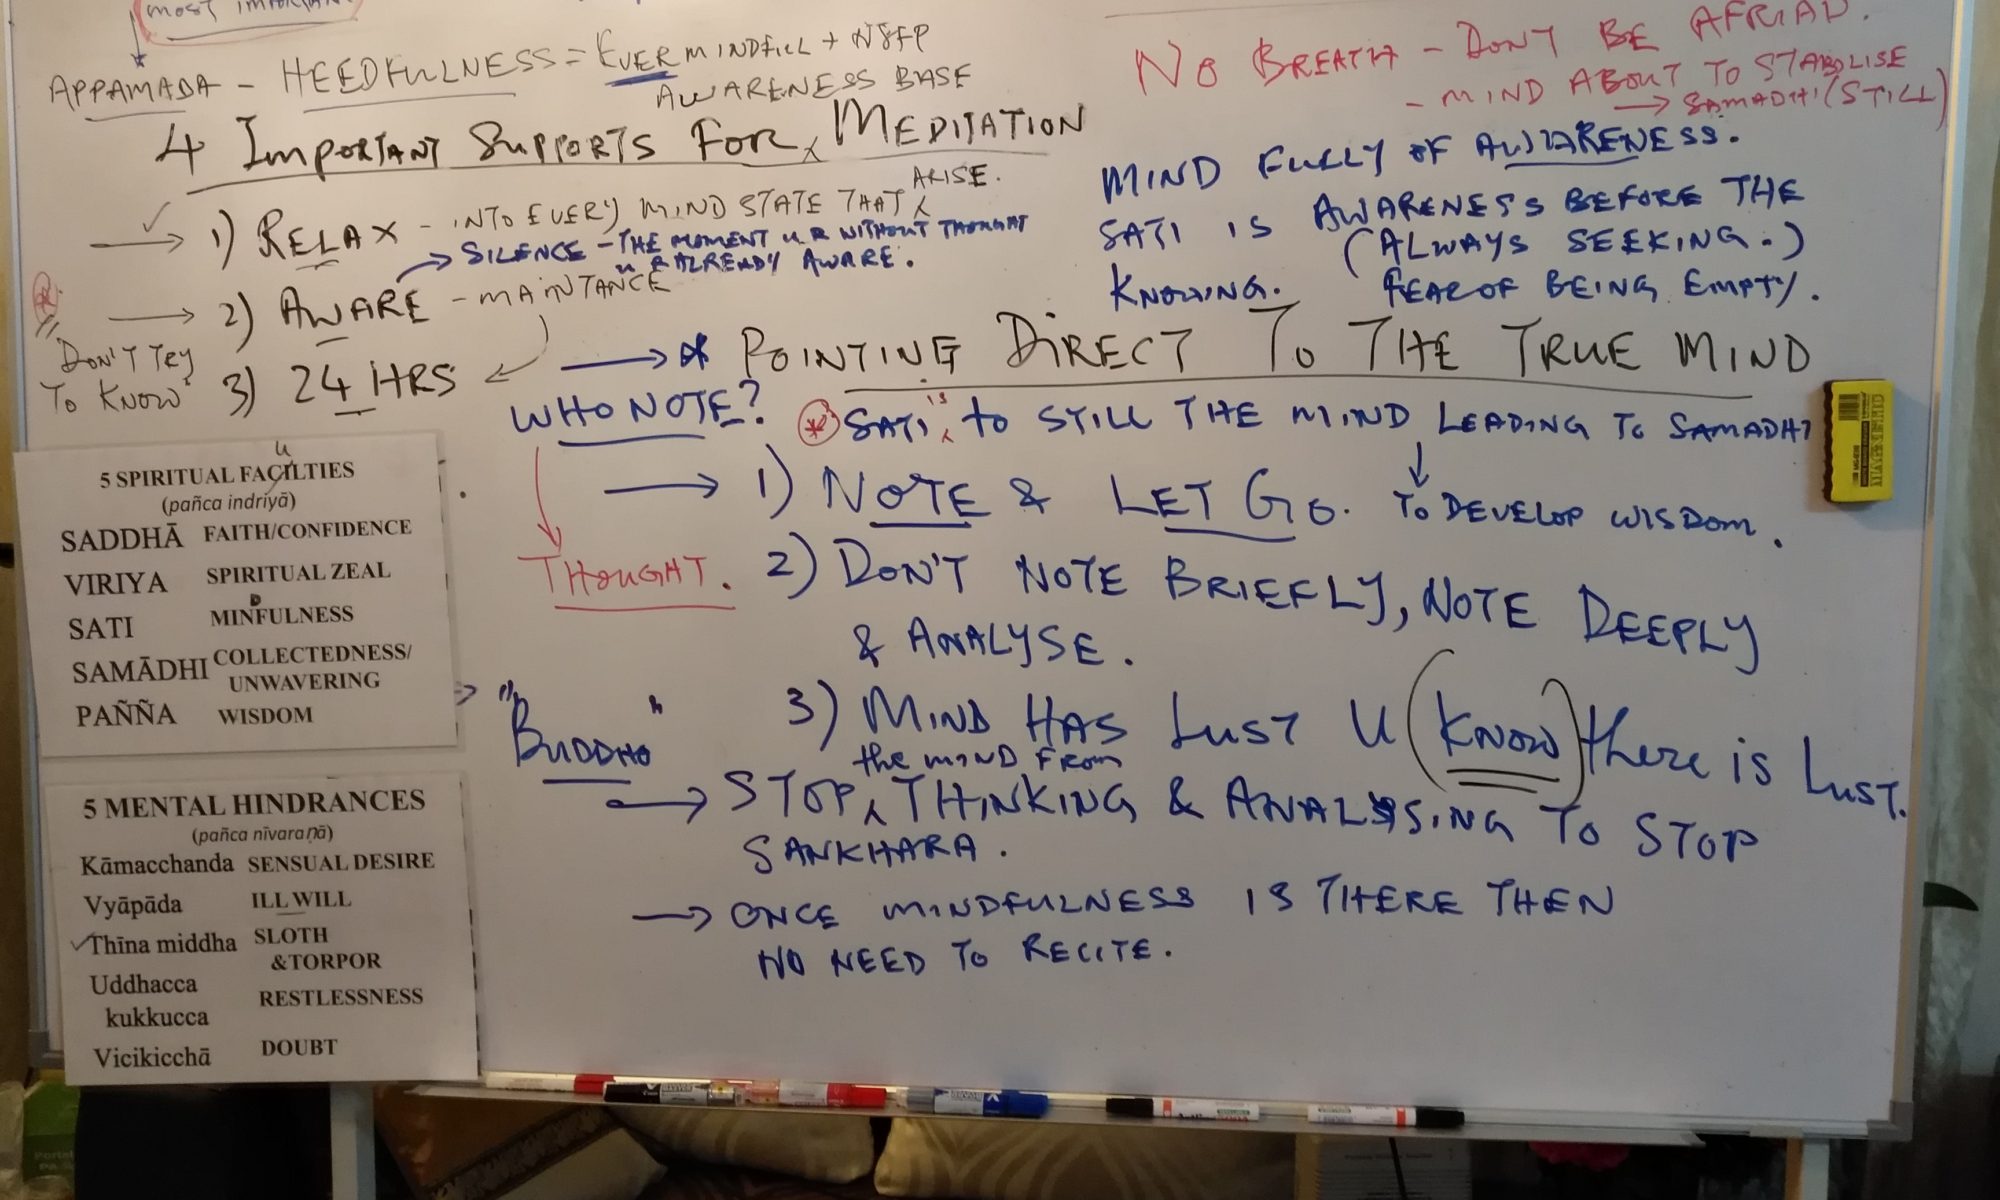 MOST IMPORTANT
APPAMADA - HEEDFULNESS = EVER MINDFULL + N8FP
AWARENESS BASE
4 IMPORTANT SUPPORTS FOR MEDITATION
1) RELAX - INTO EVERY MIND STATE THAT ARISE.
SILENCE - THE MOMENT U R WITHOUT THOUGHT
U R ALREADY AWARE.
2) AWARE - MAINTANCE
"DON'T TRY
TO KNOW"
3) 24 HRS
NO BREATH - DON'T BE AFRIAD.
- MIND ABOUT TO STABOLISE
→ SAMADHI (STILL)
MIND FULLY OF AWARENESS.
SATI IS AWARENESS BEFORE THE
KNOWING.
(ALWAYS SEEKING.)
FEAR OF BEING EMPTY.
→ * POINTING DIRECT TO THE TRUE MIND
WHO NOTE?
THOUGHT.
* SATI is to STILL THE MIND LEADING TO SAMADHI
→ 1) NOTE & LET GO. TO DEVELOP WISDOM.
2) DON'T NOTE BRIEFLY, NOTE DEEPLY
& ANALYSE.
3) MIND HAS LUST U (KNOW) there is LUST.
"BUDDHO"
→ STOP the MIND FROM THINKING & ANALYSING TO STOP
SANKHARA.
→ ONCE MINDFULNESS IS THERE THEN
NO NEED TO RECITE.
5 SPIRITUAL FACILTIES
u
(pañca indriyā)
SADDHĀ FAITH/CONFIDENCE
VIRIYA SPIRITUAL ZEAL
SATI MINDFULNESS
SAMĀDHI COLLECTEDNESS/
UNWAVERING
PAÑÑA WISDOM
5 MENTAL HINDRANCES
(pañca nīvaraṇā)
Kāmacchanda SENSUAL DESIRE
Vyāpāda ILL WILL
Thīna middha SLOTH
&TORPOR
Uddhacca
kukkucca RESTLESSNESS
Vicikicchā DOUBT